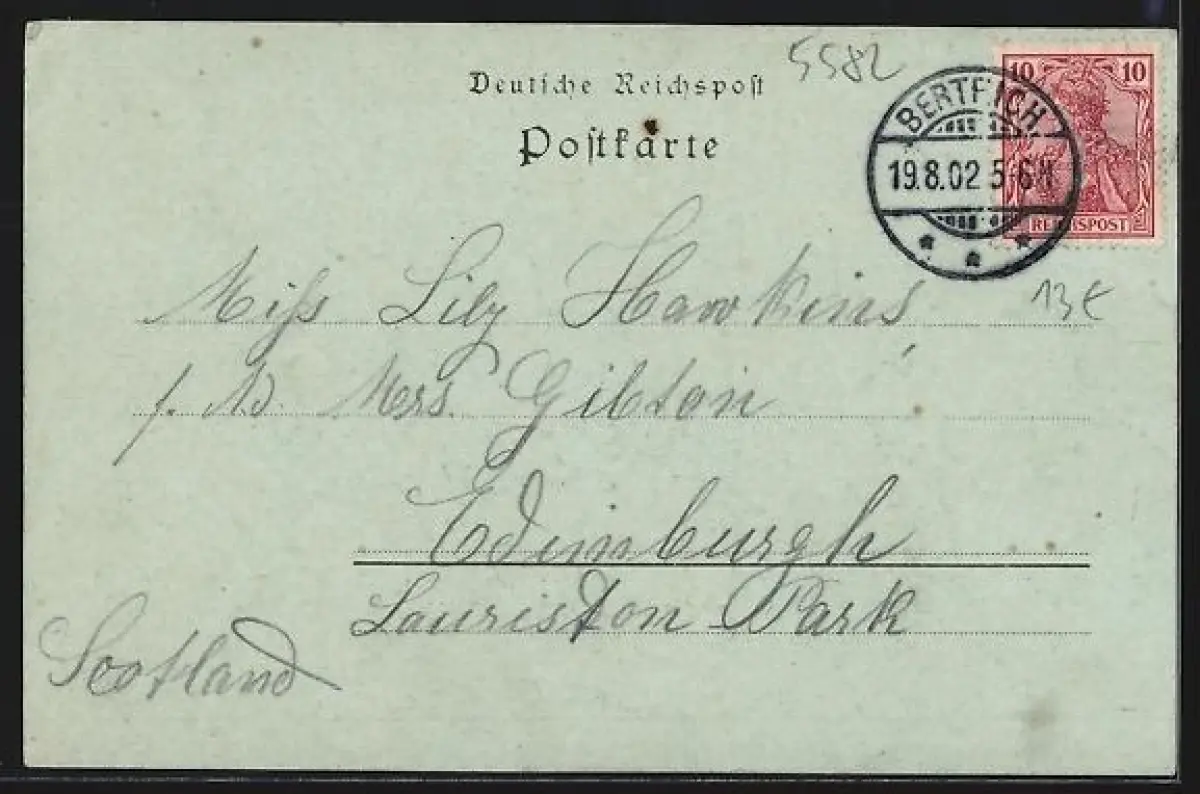 5582
Deutsche Reichspost
Postkarte
10 10
BERTRICH
19.8.02 5-6N
REICHSPOST
13€
Miss Lily Hawkins,
f. Ad. Mrs. Gibson
Edinburgh
Lauriston Park
Scotland